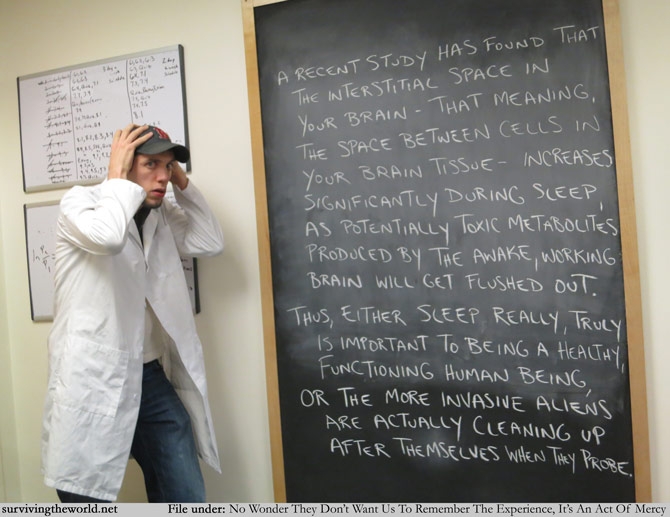 A RECENT STUDY HAS FOUND THAT
THE INTERSTITIAL SPACE IN
YOUR BRAIN - THAT MEANING,
THE SPACE BETWEEN CELLS IN
YOUR BRAIN TISSUE - INCREASES
SIGNIFICANTLY DURING SLEEP,
AS POTENTIALLY TOXIC METABOLITES
PRODUCED BY THE AWAKE, WORKING
BRAIN WILL GET FLUSHED OUT.
THUS, EITHER SLEEP REALLY, TRULY
IS IMPORTANT TO BEING A HEALTHY,
FUNCTIONING HUMAN BEING,
OR THE MORE INVASIVE ALIENS
ARE ACTUALLY CLEANING UP
AFTER THEMSELVES WHEN THEY PROBE.
survivingtheworld.net File under: No Wonder They Don't Want Us To Remember The Experience, It's An Act Of Mercy